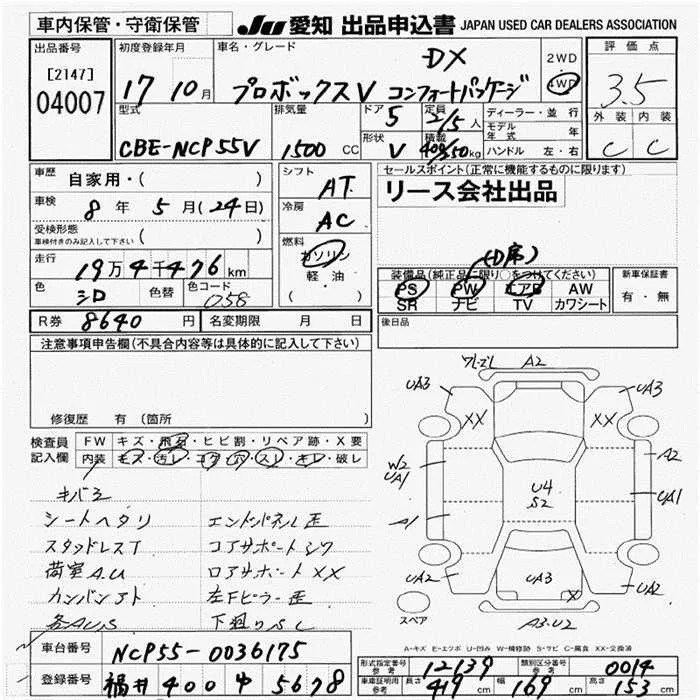 車内保管・守衛保管
JU 愛知 出品申込書 JAPAN USED CAR DEALERS ASSOCIATION
出品番号
[2147]
04007
初度登録年月
17 10月
車名・グレード
DX
プロボックスV コンフォートパッケージ
2WD
4WD
評価点
3.5
外装 内装
C C
型式
CBE-NCP55V
排気量
1500 CC
ドア 5
形状 V
定員 2/5 人
積載 400/250 kg
ディーラー・並行
モデル年式 年
ハンドル 左・右
車歴 自家用・( )
車検 8年 5月(24日)
受検形態
車検付きのみ記入して下さい ( )
走行 19万4千476km
色 シロ 色替 色コード 058
R券 8640 円 名変期限 月 日
シフト AT
冷房 AC
燃料
ガソリン
軽・油
( )
セールスポイント(正常に機能するものに限ります)
リース会社出品
(D席)
装備品(純正品に限り○をつけてください)
PS PW エアB AW
SR ナビ TV カワシート
新車保証書
有・無
後日品
注意事項申告欄(不具合内容等は具体的に記入して下さい)
修復歴 有(箇所 )
検査員記入欄
FW キズ・飛石・ヒビ割・リペア跡・X要
内装 キズ・汚レ・コゲ・穴・スレ・キレ・破レ
キバミ
シートヘタリ
スタッドレスT
荷室A.U
カンバンアト
各AUS
エンドパネル歪
コアサポートシワ
ロアサポートXX
左Fピラー歪
下廻りSC
A2
UA3 UA3
XX XX
W2
UA1
A1
A2
UA1
U4
S2
UA2 UA3 X UA2
A3.U2
スペア
A-キズ E-エクボ U-凹み W-補修跡 S-サビ C-腐食 XX-交換済
車台番号 NCP55-0036175
登録番号 福井 400 ゆ 5678
形式指定番号 参考 12139 類別区分番号 参考 0014
車庫証明用 参考 長さ 419 cm 幅 169 cm 高さ 153 cm